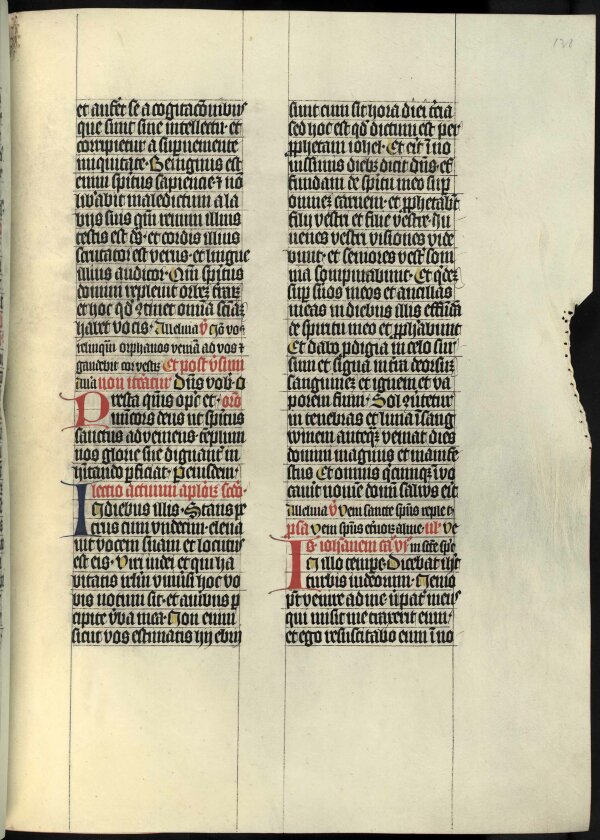 et aufert se a cogitac̄onibus
que sunt sine intellectu· et
corripietur a supueniente
iniquitate· Benignus est
enim sp̄itus sapiencie· ⁊ nō
lib̕abit maledictum a la
bijs suis qm̄ renum illius
testis est dē̄s· et cordis illius
scrutator est verus· et lingue
illius auditor· Qm̄ sp̄itus
domini repleuit orbeꝫ t̕raꝝ
et hoc qd̕ ꝯtinet omīa sciaꝫ
habet vocis· Alleluia v̕ Nō vos
relinquā orphanos veniā ad vos ⁊
gaudebit cor vestrū Et post v̕sum
alla non itratur Dn̄s vob· O
Presta qūis op̄c et· or̄o
mīcors deus ut sp̄itus
sanctus adueniens· templum
nos glorie sue dignant̕ in
hitando ꝑficiat· Per eiusdem·
lectio actuum aplōꝝ· sc̄dō·
In diebus illis· Stans pe
trus cum vndecim· eleua
uit vocem suam et locutus
est eis· Viri iudei et qui ha
bitatis irlm̄ vniuersi hoc vo
bis notum sit· et auribus ꝑ
cipite v̕ba mea· Non enim
sicut vos estimatis hij ebrij
sunt cum sit hora diei t̕cia
sed hoc est qd̕ dictum est per
ꝓphetam iohel· Et erit ī no
uissimis diebꝫ dicit dn̄s· ef
fundam de sp̄itu meo sup̕
omneꝫ carnem· et ꝓphetabūt
filij vestri et filie vestre· Iu
uenes vestri visiones vide
bunt· et seniores vestri som
nia sompniabunt· Et qdeꝫ
sup̕ seruos meos et ancillas
meas in diebus illis effūdā
de sp̄itu meo et ꝓphabunt
Et dabo ꝓdigia in celo sur
sum et signa in t̕ra deorsū
sanguineꝫ et ignem et va
porem fumi· Sol ꝯu̕tetur
in tenebras et luna ī sang
winem· anteqꝫ veniat dies
domini magnus et manife
stus Et omnis quicunqꝫ īuo
cauit̕ nomē domī saluus erit
Alleluia v̕ Veni sancte sp̄us reple t·
ꝓsa Veni sp̄us et̕norū alme· ul̕ Ve
S· iohannem ca· vi· ni scē sp̄c
In illo tempe· Dicebat ih̄c
turbis iudeorum· Nemo
pt̕ venire ad me n̄ pat̕ meus
qui misit me traxerit eum·
et ego resuscitabo eum ī no